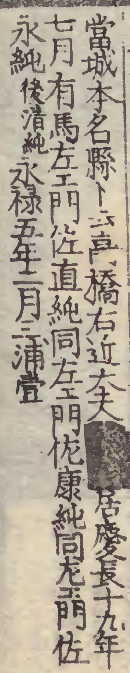 當城本名縣ト云高橋右近太夫居慶長十九年
七月有馬左エ門佐直純同左エ門佐康純同左エ門佐
永純後清純永禄五年二月三浦壹